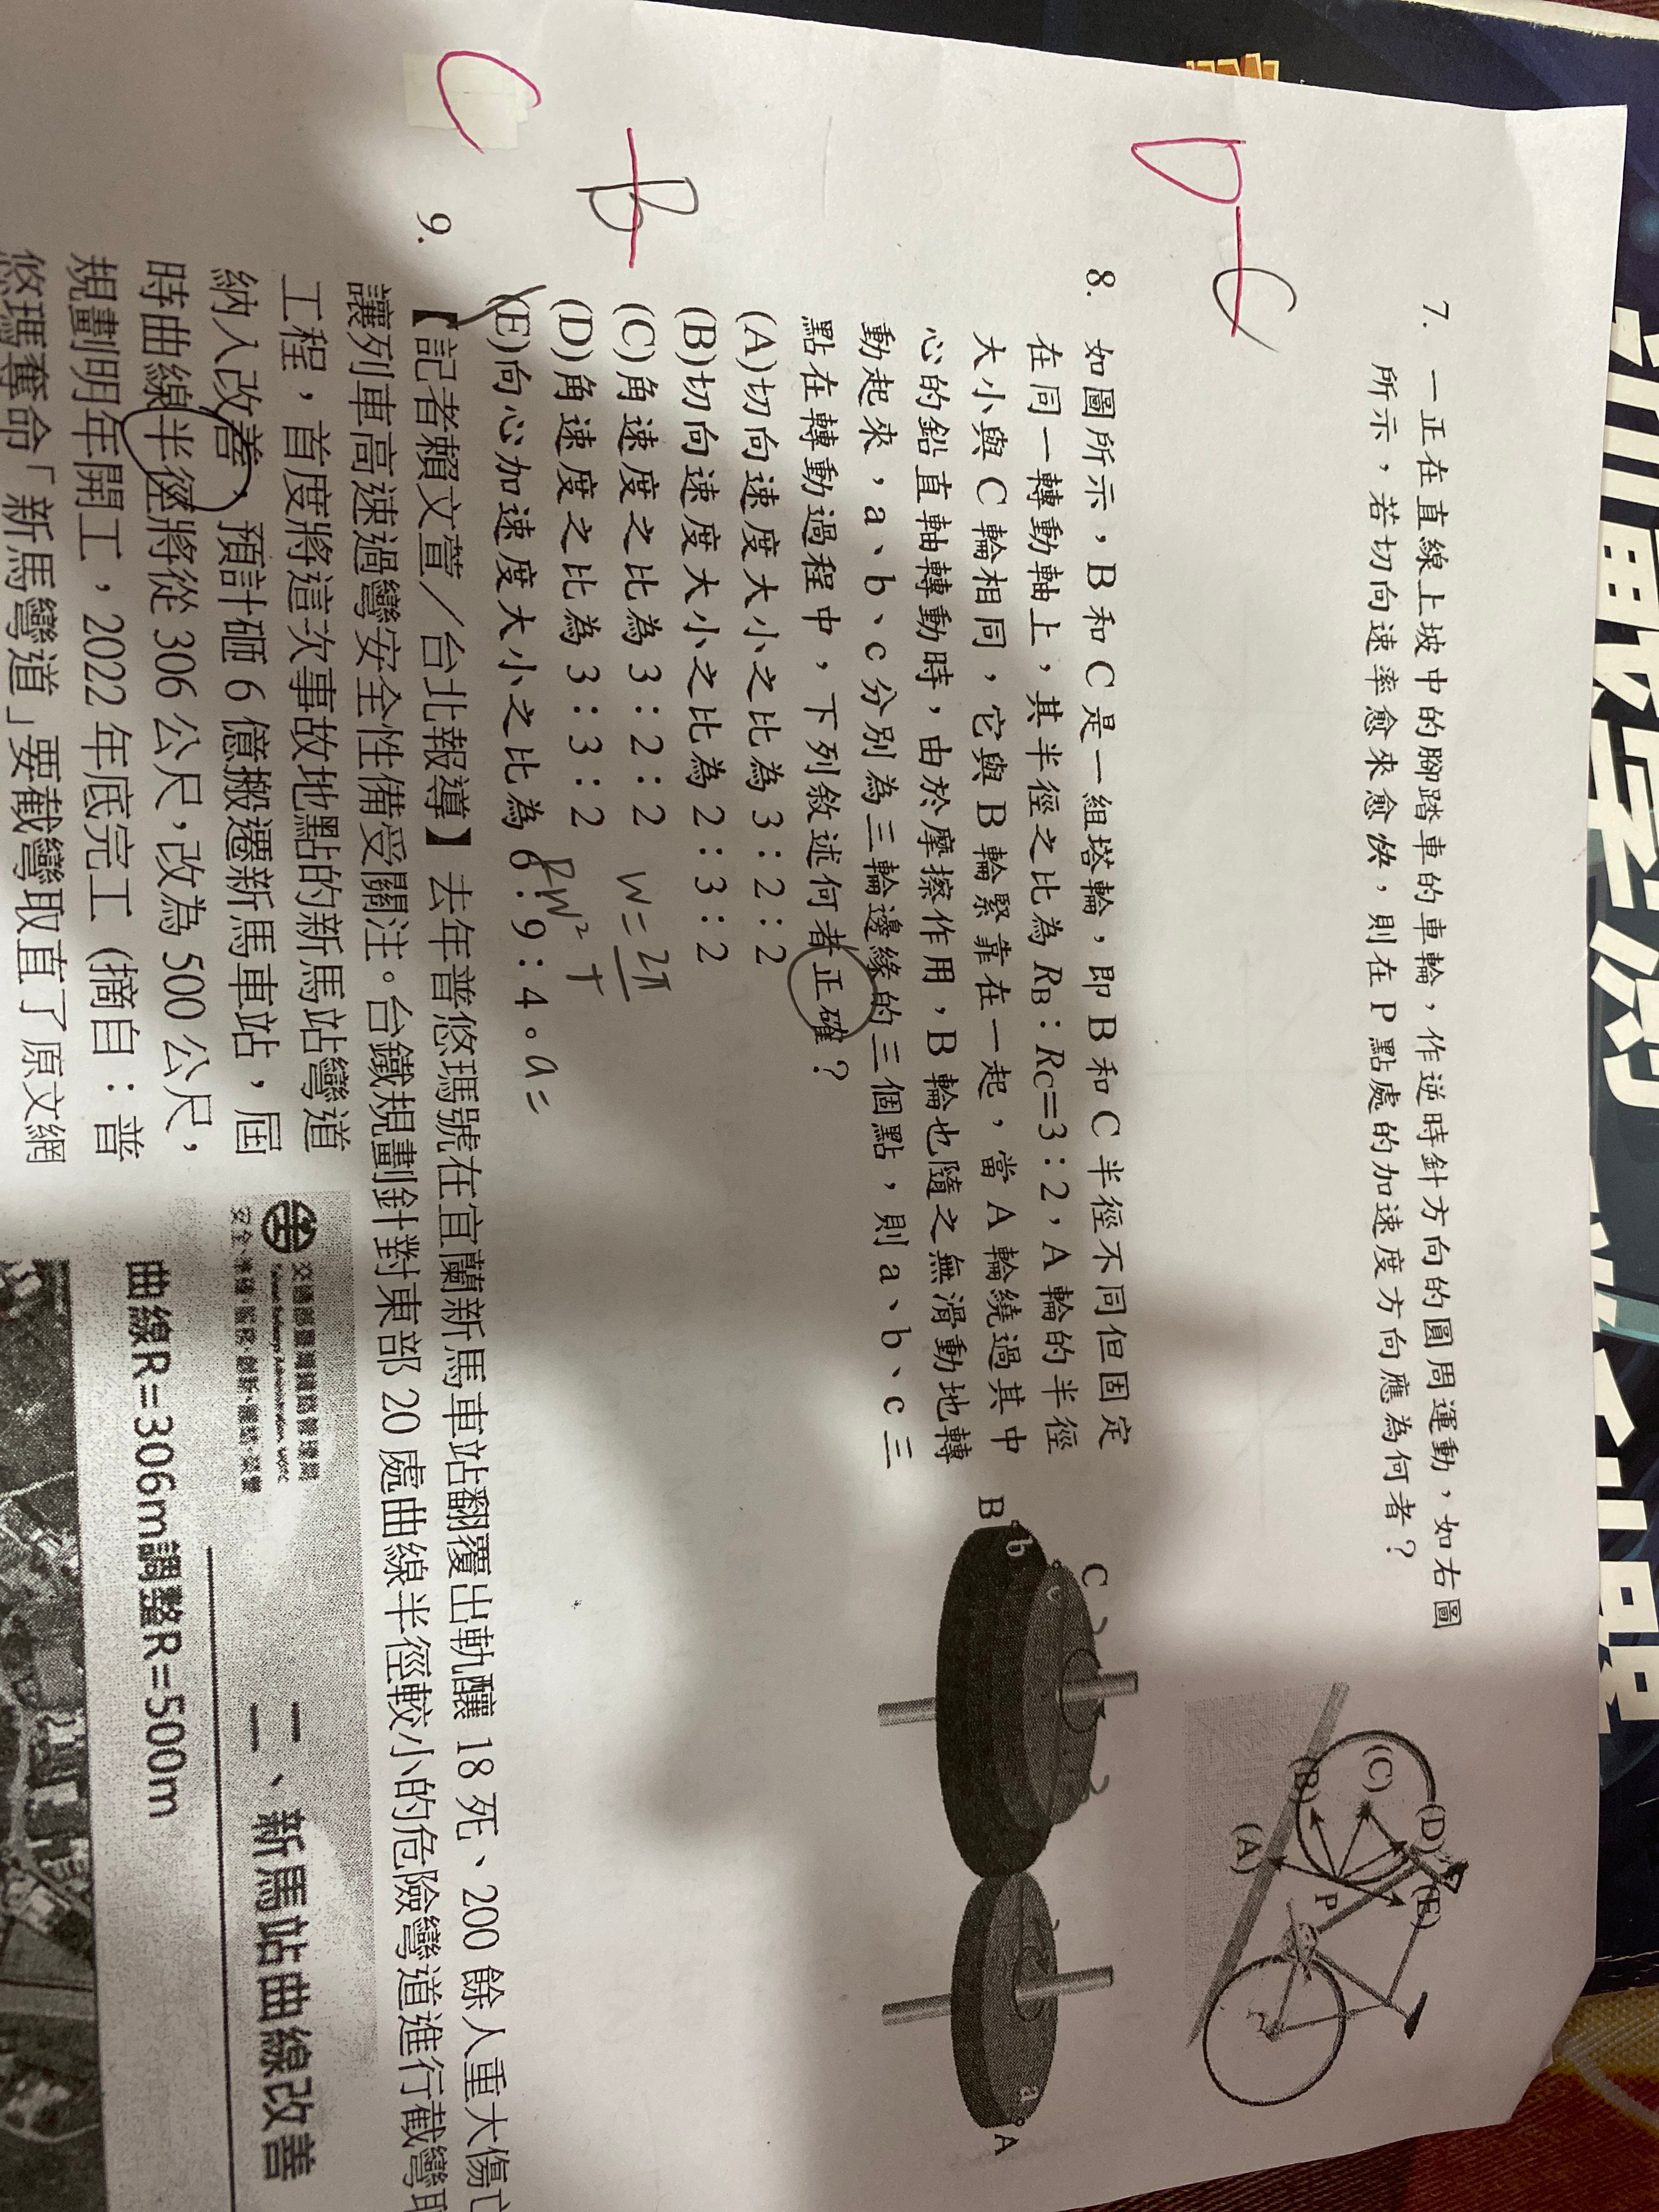 7. 一正在直線上坡中的腳踏車的車輪,作逆時針方向的圓周運動,如右圖
所示,若切向速率愈來愈快,則在 P 點處的加速度方向應為何者?
(A)
(B)
(C)
(D)
(E)
P
D
C
8. 如圖所示,B 和 C 是一組塔輪,即 B 和 C 半徑不同但固定
在同一轉動軸上,其半徑之比為 RB:RC=3:2,A 輪的半徑
大小與 C 輪相同,它與 B 輪緊靠在一起,當 A 輪繞過其中
心的鉛直軸轉動時,由於摩擦作用,B 輪也隨之無滑動地轉
動起來,a、b、c 分別為三輪邊緣的三個點,則 a、b、c 三
點在轉動過程中,下列敘述何者正確?
(A)切向速度大小之比為 3:2:2
(B)切向速度大小之比為 2:3:2
(C)角速度之比為 3:2:2
(D)角速度之比為 3:3:2
(E)向心加速度大小之比為 6:9:4。
W=2π
RW²
T
a=
B
b
C
c
a
A
B
C
9. 【記者賴文萱/台北報導】去年普悠瑪號在宜蘭新馬車站翻覆出軌釀 18 死、200 餘人重大傷亡
讓列車高速過彎安全性備受關注。台鐵規劃針對東部 20 處曲線半徑較小的危險彎道進行截彎取
工程,首度將這次事故地點的新馬站彎道
納入改善,預計砸 6 億搬遷新馬車站,屆
時曲線半徑將從 306 公尺,改為 500 公尺,
規劃明年開工,2022 年底完工 (摘自:普
悠瑪奪命「新馬彎道」要截彎取直了原文網
交通部臺灣鐵路管理局
二、新馬站曲線改善
曲線R=306m調整R=500m